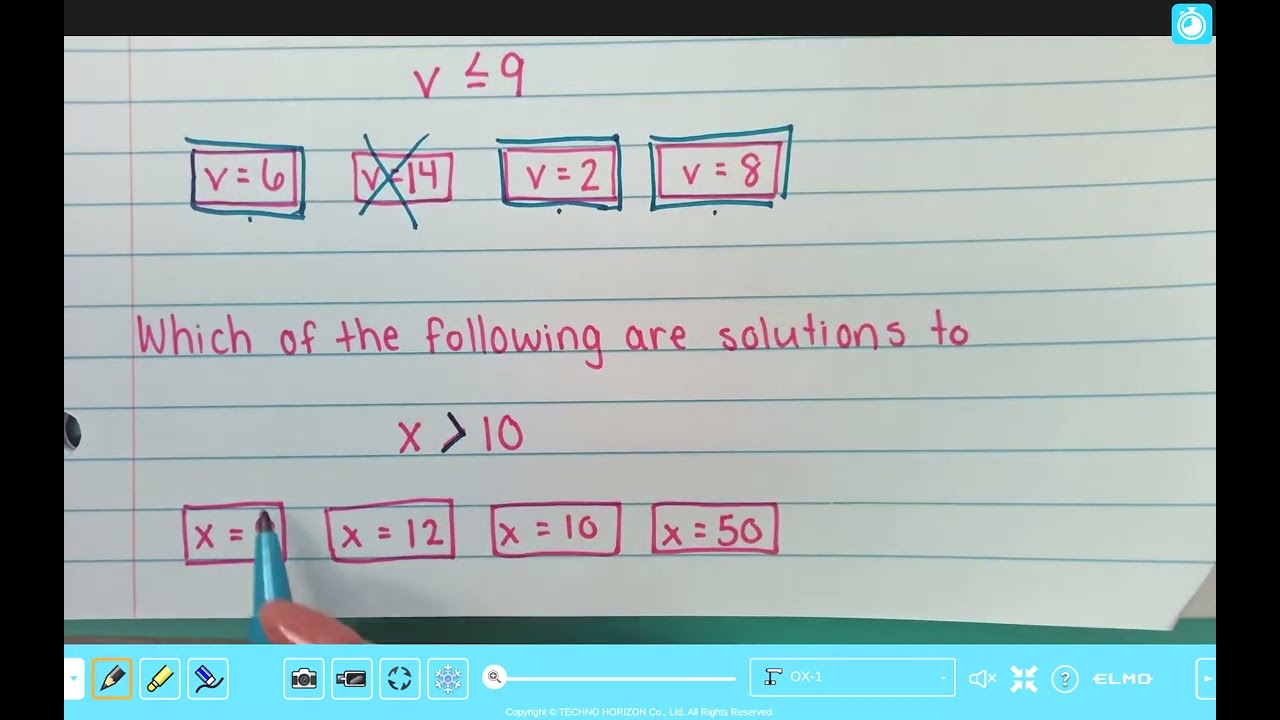 v ≤ 9
v = 6 v = 14 v = 2 v = 8
Which of the following are solutions to
x > 10
x = x = 12 x = 10 x = 50
OX-1
ELMO
Copyright © TECHNO HORIZON Co., Ltd. All Rights Reserved.